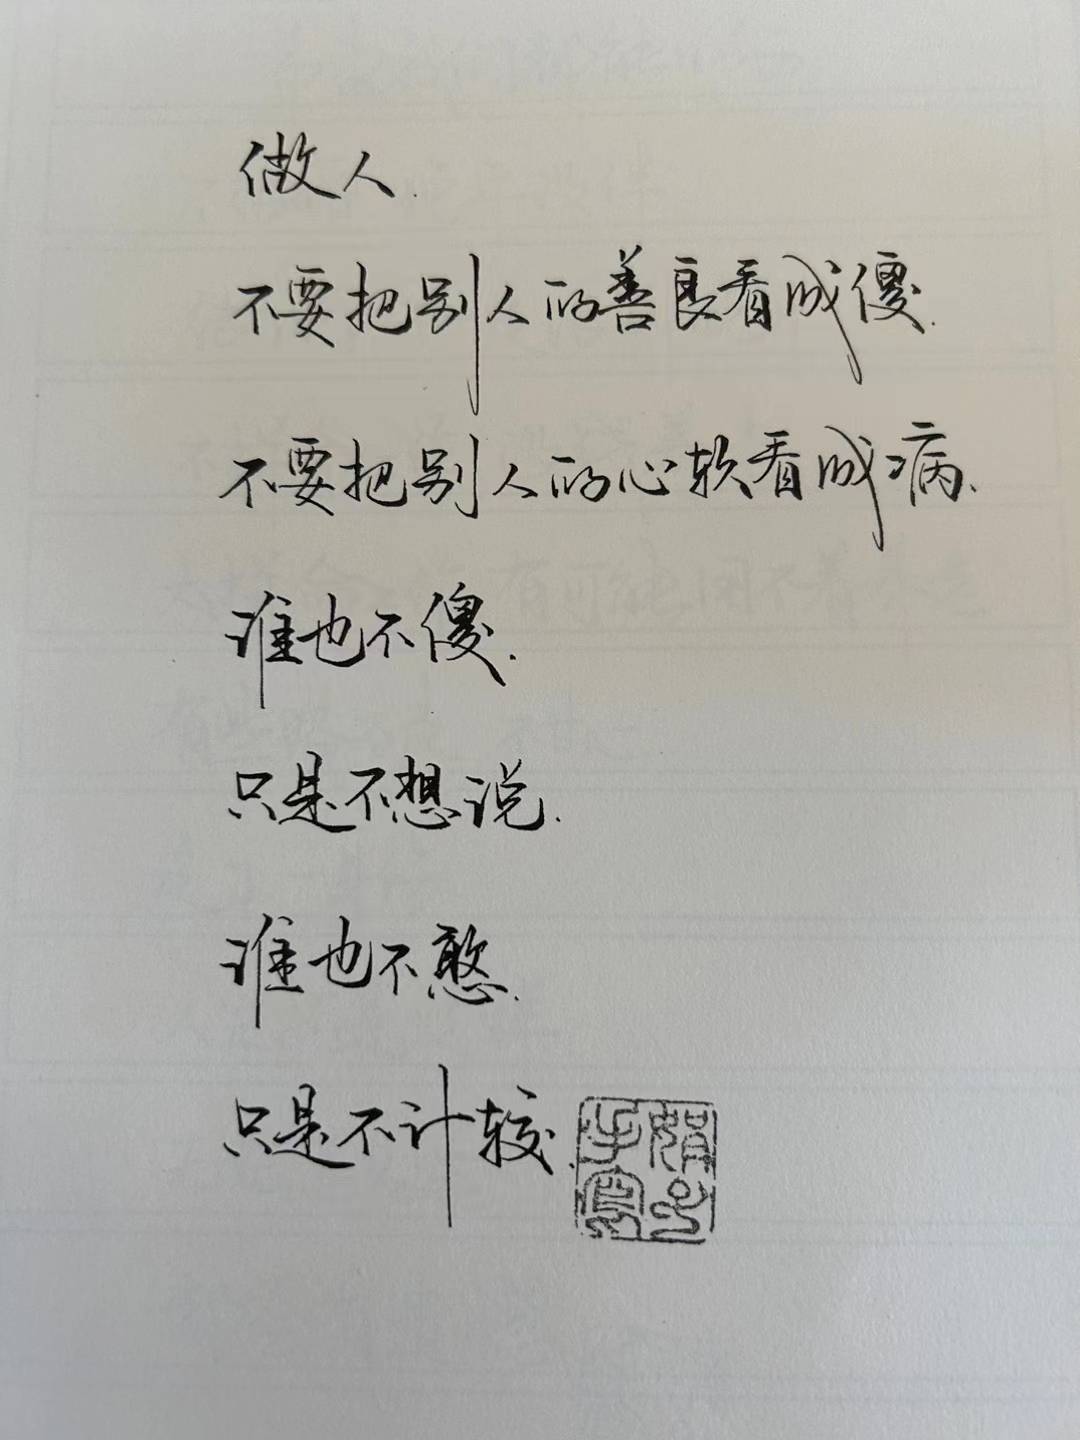 做人.
不要把别人的善良看成傻.
不要把别人的心软看成病.
谁也不傻.
只是不想说.
谁也不憨.
只是不计较.
娟子手写